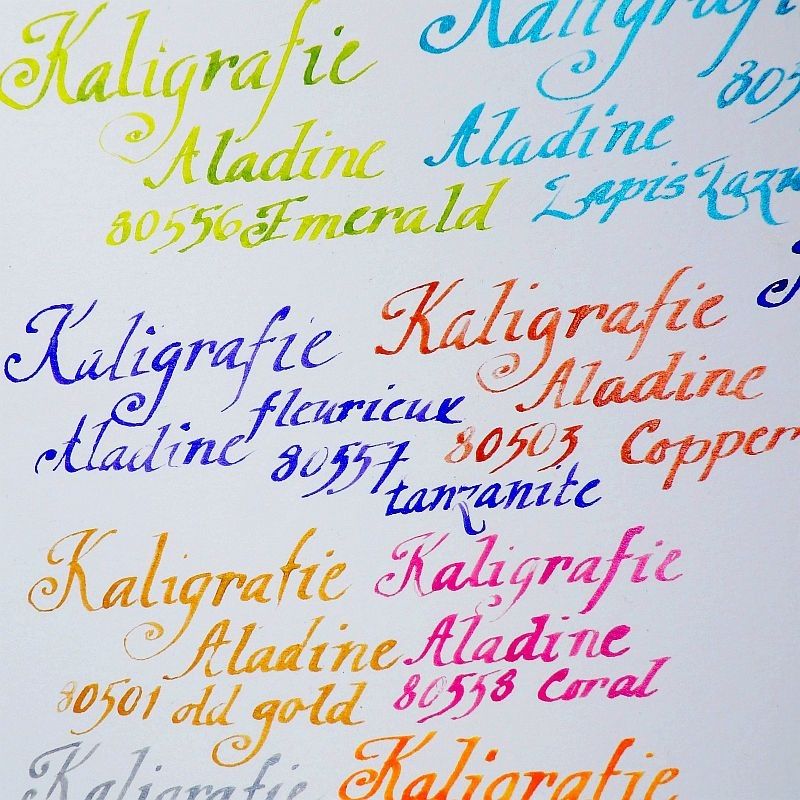 Kaligrafie
Aladine
80556 Emerald
Kaligrafi
Aladine
Lapis
Kaligrafie
fleurieux
Aladine
80557
tanzanite
Kaligrafie
Aladine
80503 Copper
Kaligrafie
Aladine
80501 old gold
Kaligrafie
Aladine
80558 Coral
Kaligrafie
Kaligrafie